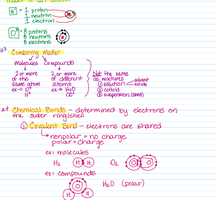 H = 1 proton
1 neutron
1 electron
O = 8 protons
8 neutrons
8 electrons
Combining Matter
Molecules Compounds
2 or more of the same atom
ex → O²
H²
2 or more of different atoms
ex → H₂O
Not the same as mixtures
① solution
solvent
solute
② colloid
③ suspension
Chemical Bonds - determined by electrons on the outer ring/shell
① Covalent Bond - electrons are shared
↳ nonpolar = no charge
polar = charge
ex: molecules
H₂ H H O₂ O O
ex: compounds
H₂O (polar)